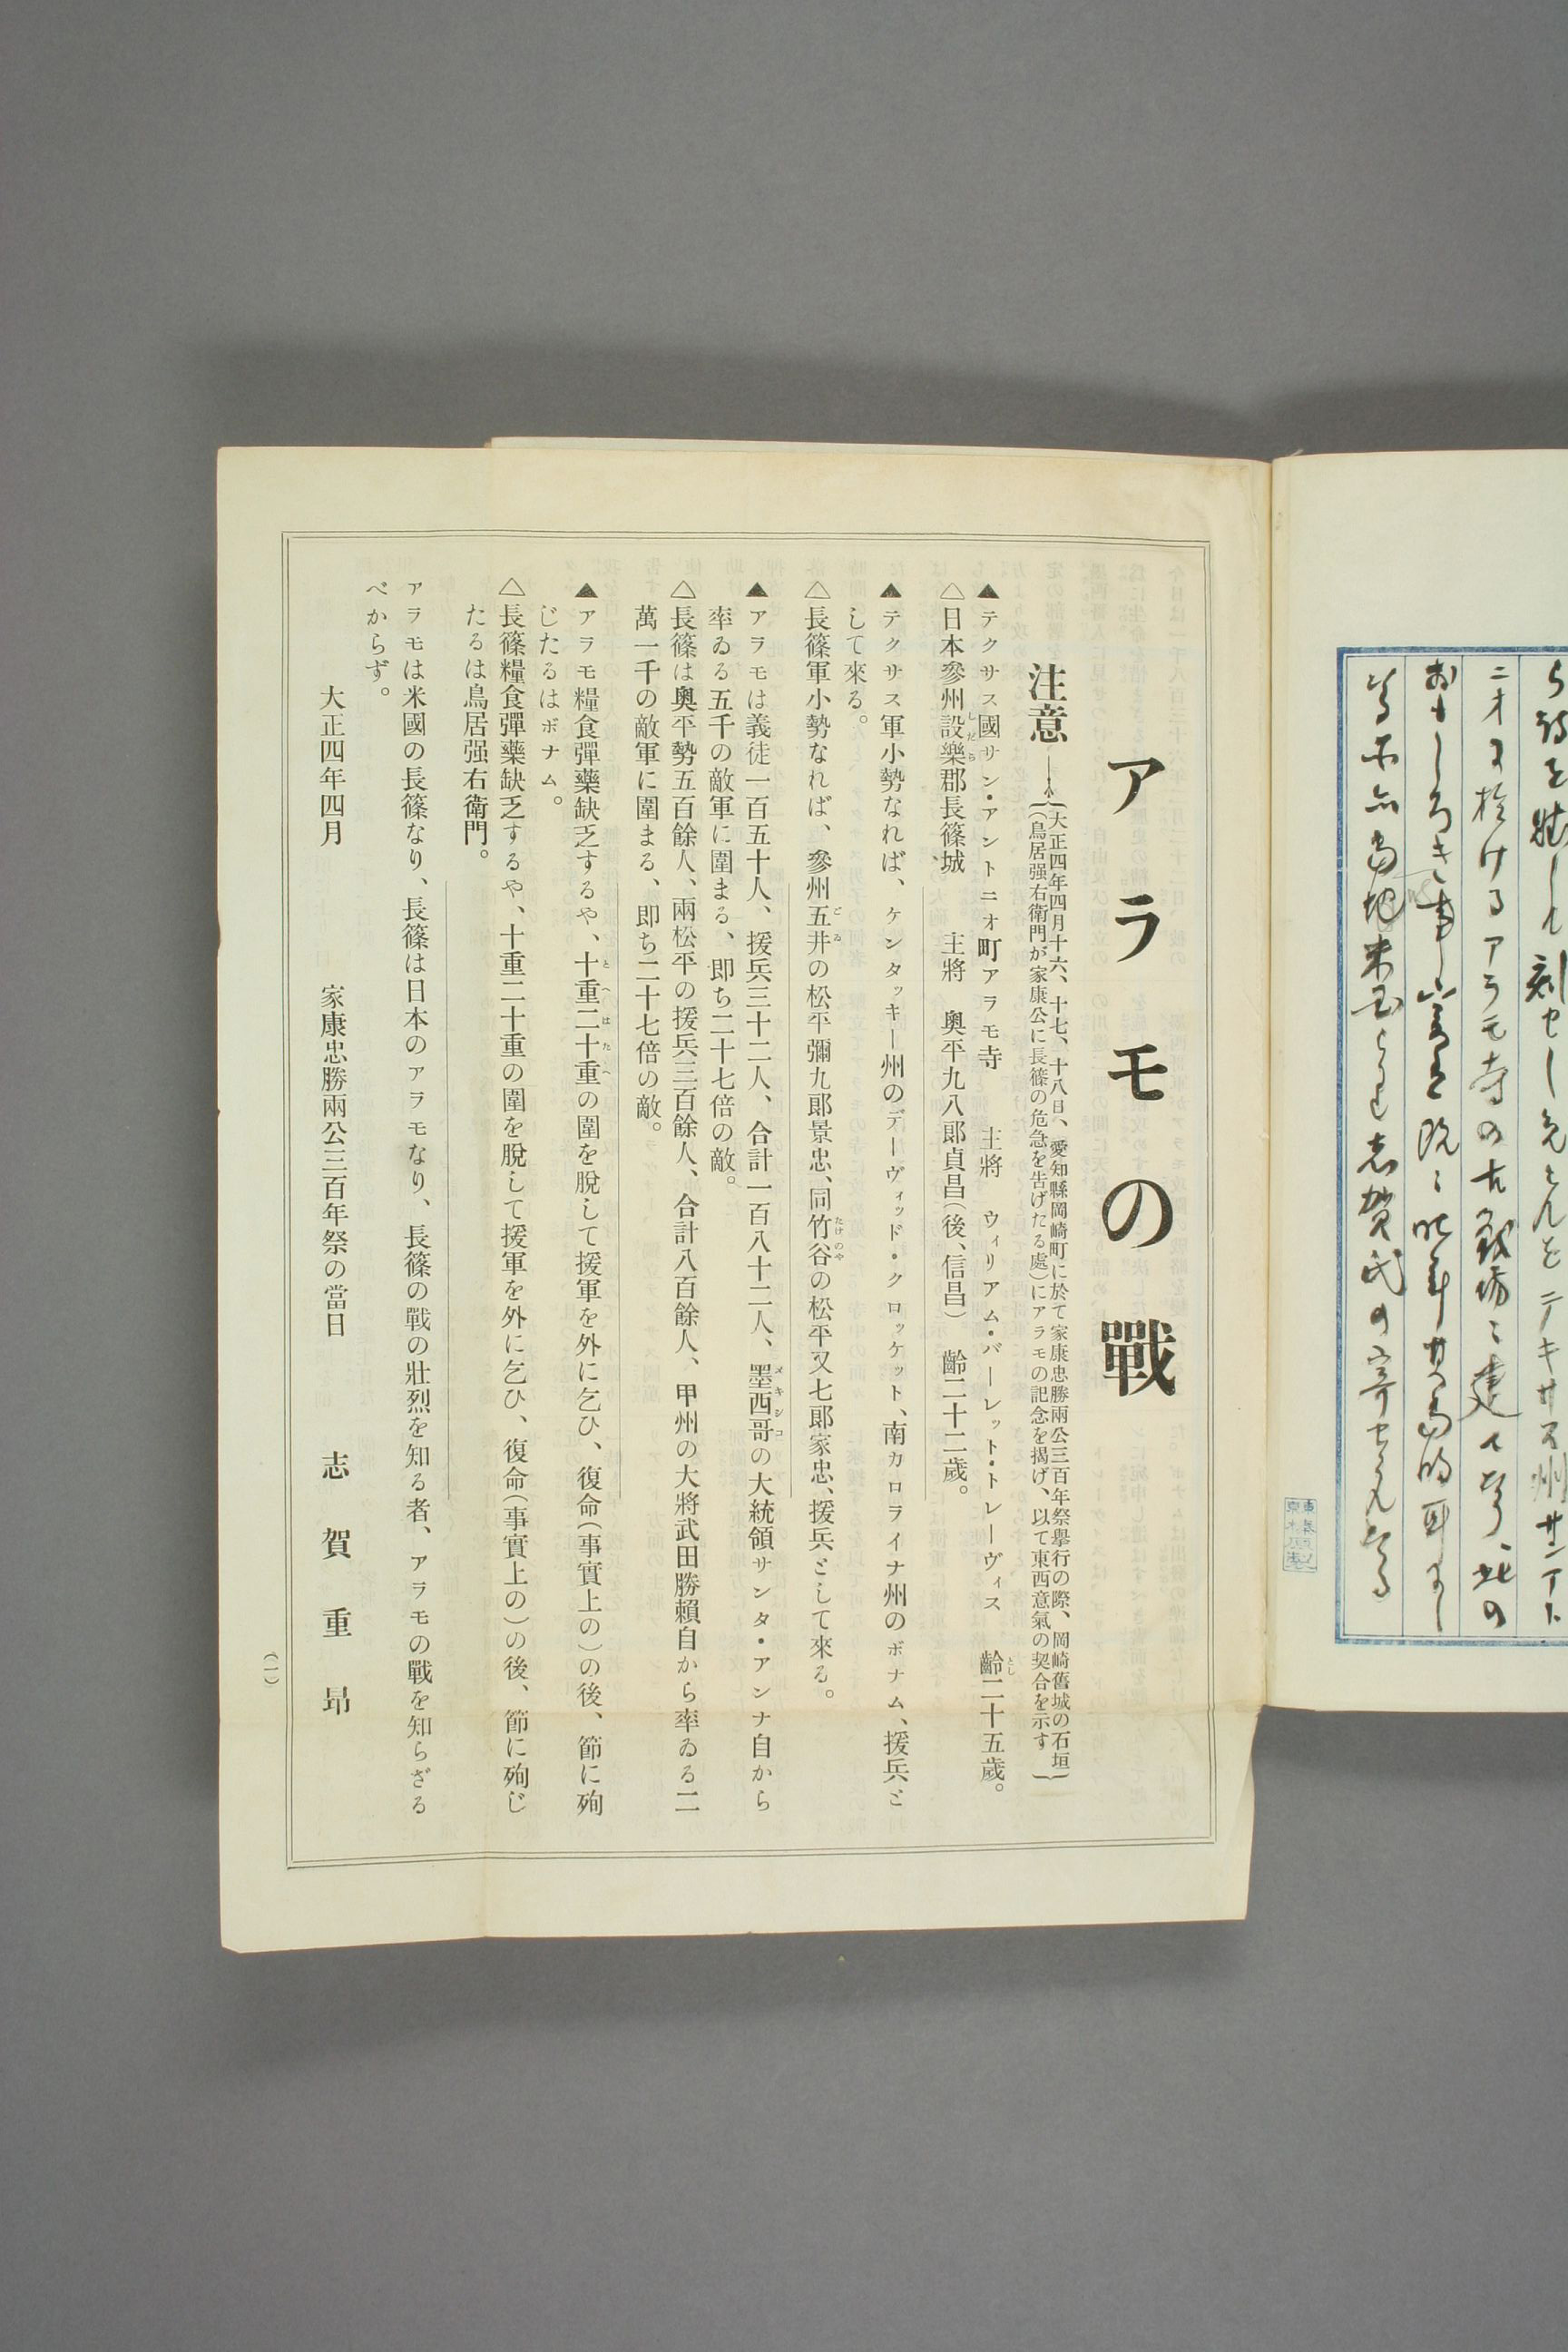 ニオに於けるアラモ寺の古戰場に建て
アラモの戰
注意―(大正四年四月十六、十七、十八日、愛知縣岡崎町に於て家康忠勝兩公三百年祭擧行の際、岡崎舊城の石垣
(鳥居强右衛門が家康公に長篠の危急を告げたる處)にアラモの記念を揭げ、以て東西意氣の契合を示す)
▲テクサス國サン・アントニオ町アラモ寺 主將 ウィリアム・バーレット・トレーヴィス 齡二十五歲。
△日本參州設樂郡長篠城 主將 奧平九八郞貞昌(後、信昌) 齡二十二歲。
▲テクサス軍小勢なれば、ケンタッキー州のデーヴィッド・クロッケット、南カロライナ州のボナム、援兵と
して來る。
△長篠軍小勢なれば、參州五井の松平彌九郞景忠、同竹谷の松平又七郞家忠、援兵として來る。
▲アラモは義徒一百五十人、援兵三十二人、合計一百八十二人、墨西哥の大統領サンタ・アンナ自から
率ゐる五千の敵軍に圍まる、即ち二十七倍の敵。
△長篠は奧平勢五百餘人、兩松平の援兵三百餘人、合計八百餘人、甲州の大將武田勝賴自から率ゐる二
萬一千の敵軍に圍まる、即ち二十七倍の敵。
▲アラモ糧食彈藥缺乏するや、十重二十重の圍を脫して援軍を外に乞ひ、復命(事實上の)の後、節に殉
じたるはボナム。
△長篠糧食彈藥缺乏するや、十重二十重の圍を脫して援軍を外に乞ひ、復命(事實上の)の後、節に殉じ
たるは鳥居强右衛門。
アラモは米國の長篠なり、長篠は日本のアラモなり、長篠の戰の壯烈を知る者、アラモの戰を知らざる
べからず。
大正四年四月 家康忠勝兩公三百年祭の當日 志賀重昂
(一)